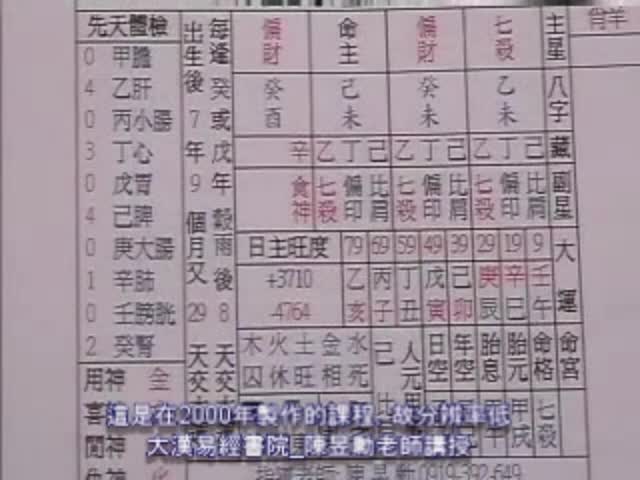 肖羊
檢體天先
每逢癸或戊年
出生後7年9個月又29天交
穀雨後8天交
0 甲膽
4 乙肝
0 丙小腸
3 丁心
0 戊胃
4 己脾
0 庚大腸
1 辛肺
0 壬膀胱
2 癸腎
用神 金
喜
閒神
偏財 命主 偏財 七殺 主星
癸酉 己未 癸未 乙未 八字
辛 乙丁己 乙丁己 乙丁己 藏
食神 七殺 偏印 比肩 七殺 偏印 比肩 七殺 偏印 比肩 副星
日主旺度 79 69 59 49 39 29 19 9 大運
+3710 乙 丙 丁 戊 己 庚 辛 壬
-4764 亥 子 丑 寅 卯 辰 巳 午
木火土金水 己 人元 日空 年空 胎息 胎元 命格 命宮
囚休旺相死
七殺
這是在2000年製作的課程，故分辨率低
大漢易經書院_陳昱勳老師講授
0919-392-649